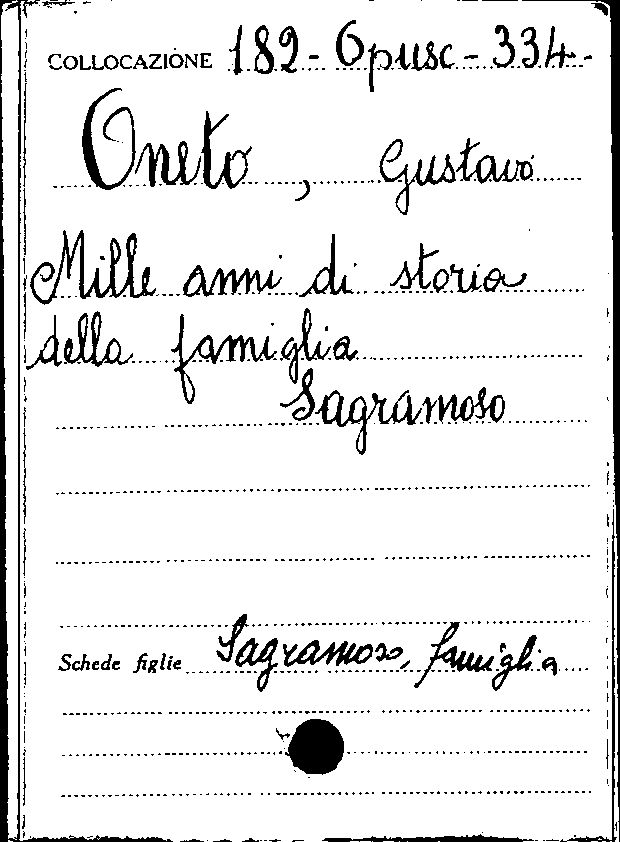 COLLOCAZIONE 182 - Opusc - 334 -
Oneto, Gustavo
Mille anni di storia
della famiglia
Sagramoso
Schede figlie Sagramoso, famiglia